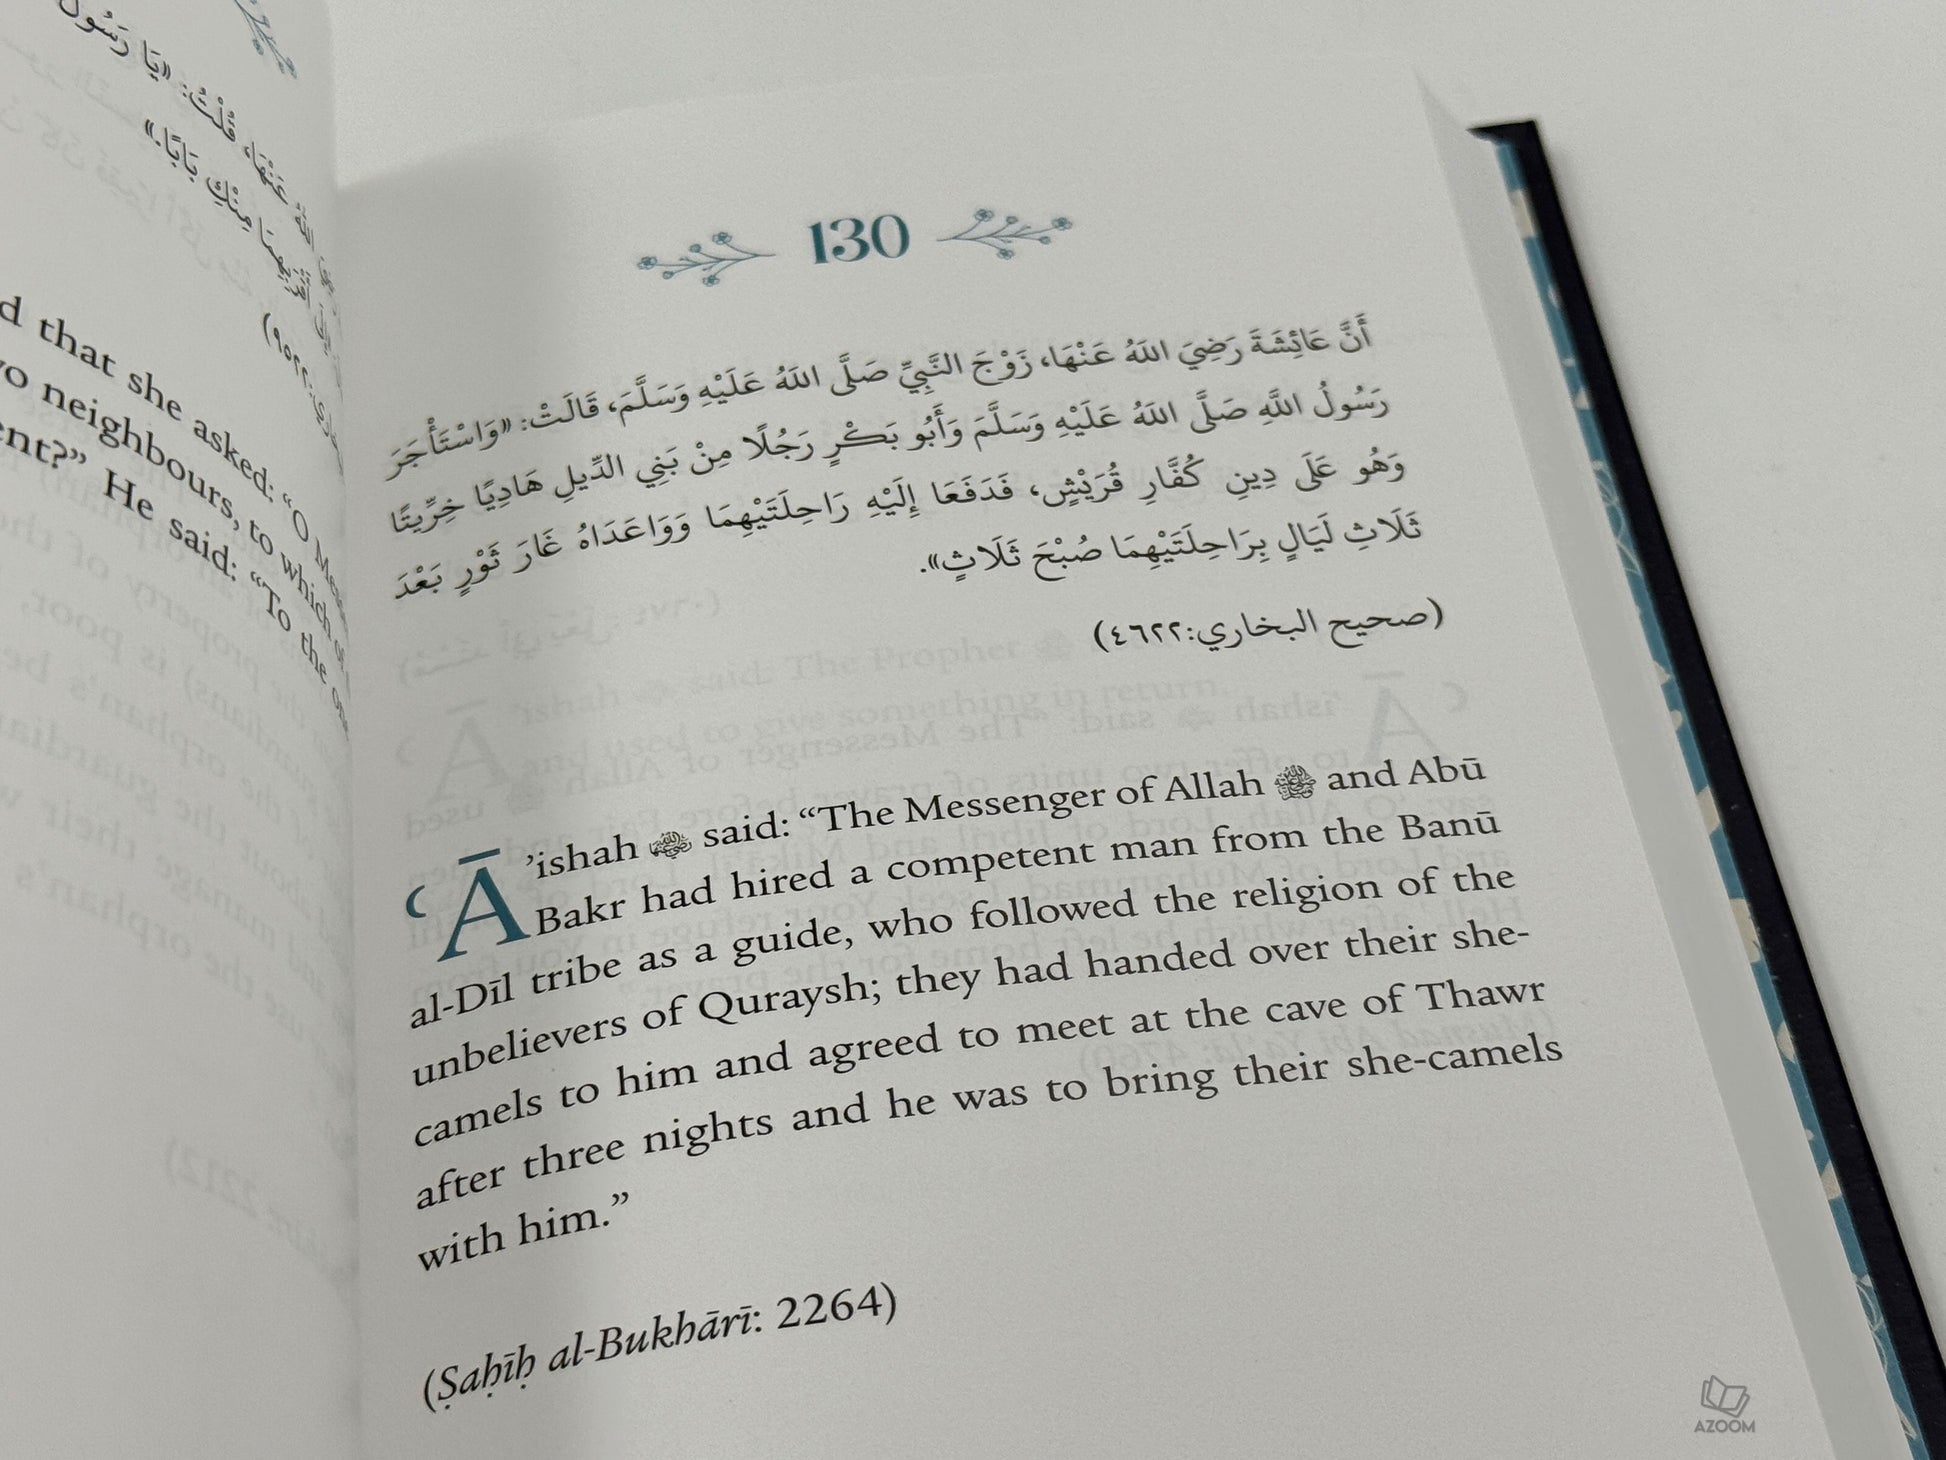 يَا رَسُولَ
اللهُ عَنْهَا، قُلْتُ: «يَا رَسُولَ
أَقْرَبِهِمَا مِنْكِ بَابًا.»
d that she asked: “O
wo neighbours, to which of
ent?” He said: “To the
130
أَنَّ عَائِشَةَ رَضِيَ اللهُ عَنْهَا، زَوْجَ النَّبِيِّ صَلَّى اللهُ عَلَيْهِ وَسَلَّمَ، قَالَتْ: «وَاسْتَأْجَرَ
رَسُولُ اللَّهِ صَلَّى اللهُ عَلَيْهِ وَسَلَّمَ وَأَبُو بَكْرٍ رَجُلًا مِنْ بَنِي الدِّيلِ هَادِيًا خِرِّيتًا
وَهُو عَلَى دِينِ كُفَّارِ قُرَيْشٍ، فَدَفَعَا إِلَيْهِ رَاحِلَتَيْهِمَا وَوَاعَدَاهُ غَارَ ثَوْرٍ بَعْدَ
ثَلَاثِ لَيَالٍ بِرَاحِلَتَيْهِمَا صُبْحَ ثَلَاثٍ».
(صحيح البخاري:٤٦٢٢)
ʿĀ’ishah ﷺ said: “The Messenger of Allah ﷺ and Abū
Bakr had hired a competent man from the Banū
al-Dīl tribe as a guide, who followed the religion of the
unbelievers of Quraysh; they had handed over their she-
camels to him and agreed to meet at the cave of Thawr
after three nights and he was to bring their she-camels
with him.”
(Ṣaḥīḥ al-Bukhārī: 2264)
AZOOM